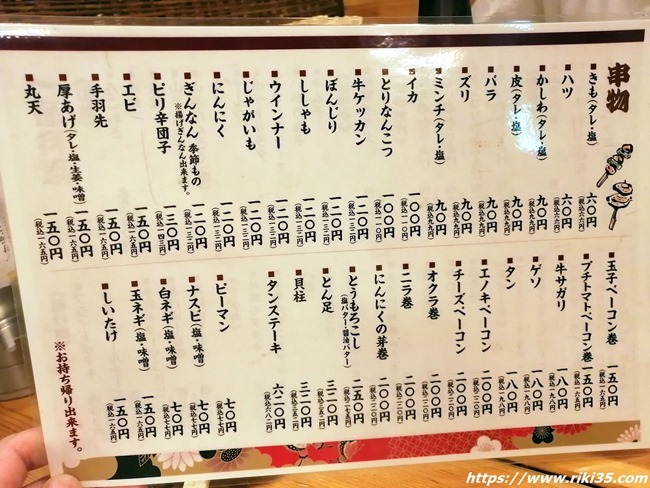 串物
きも(タレ・塩) 六〇円 (税込六六円)
ハツ 六〇円 (税込六六円)
かしわ(タレ・塩) 九〇円 (税込九九円)
皮(タレ・塩) 九〇円 (税込九九円)
バラ 九〇円 (税込九九円)
ズリ 九〇円 (税込九九円)
ミンチ(タレ・塩) 九〇円 (税込九九円)
イカ 一〇〇円 (税込一一〇円)
とりなんこつ 一〇〇円 (税込一一〇円)
牛ケッカン 一〇〇円 (税込一一〇円)
ぼんじり 一二〇円 (税込一三二円)
ししゃも 一二〇円 (税込一三二円)
ウインナー 一二〇円 (税込一三二円)
じゃがいも 一二〇円 (税込一三二円)
にんにく 一二〇円 (税込一三二円)
ぎんなん 季節もの 一二〇円 (税込一三二円)
※揚げぎんなん出来ます。
ピリ辛団子 一三〇円 (税込一四三円)
エビ 一五〇円 (税込一六五円)
手羽先 一五〇円 (税込一六五円)
厚あげ(タレ・塩・生姜・味噌) 一五〇円 (税込一六五円)
丸天 一五〇円 (税込一六五円)
玉子ベーコン巻 一五〇円 (税込一六五円)
プチトマトベーコン巻 一五〇円 (税込一六五円)
牛サガリ 一八〇円 (税込一九八円)
ゲソ 一八〇円 (税込一九八円)
タン 一八〇円 (税込一九八円)
エノキベーコン 二〇〇円 (税込二二〇円)
チーズベーコン 二〇〇円 (税込二二〇円)
オクラ巻 二〇〇円 (税込二二〇円)
ニラ巻 二〇〇円 (税込二二〇円)
にんにくの芽巻 二〇〇円 (税込二二〇円)
とうもろこし 二五〇円 (税込二七五円)
(塩バター・醤油バター)
とん足 三二〇円 (税込三五二円)
貝柱 三二〇円 (税込三五二円)
タンステーキ 六二〇円 (税込六八二円)
ピーマン 七〇円 (税込七七円)
ナスビ(塩・味噌) 七〇円 (税込七七円)
白ネギ(塩・味噌) 七〇円 (税込七七円)
玉ネギ(塩・味噌) 一五〇円 (税込一六五円)
しいたけ 一五〇円 (税込一六五円)
※お持ち帰り出来ます。
https://www.riki35.com